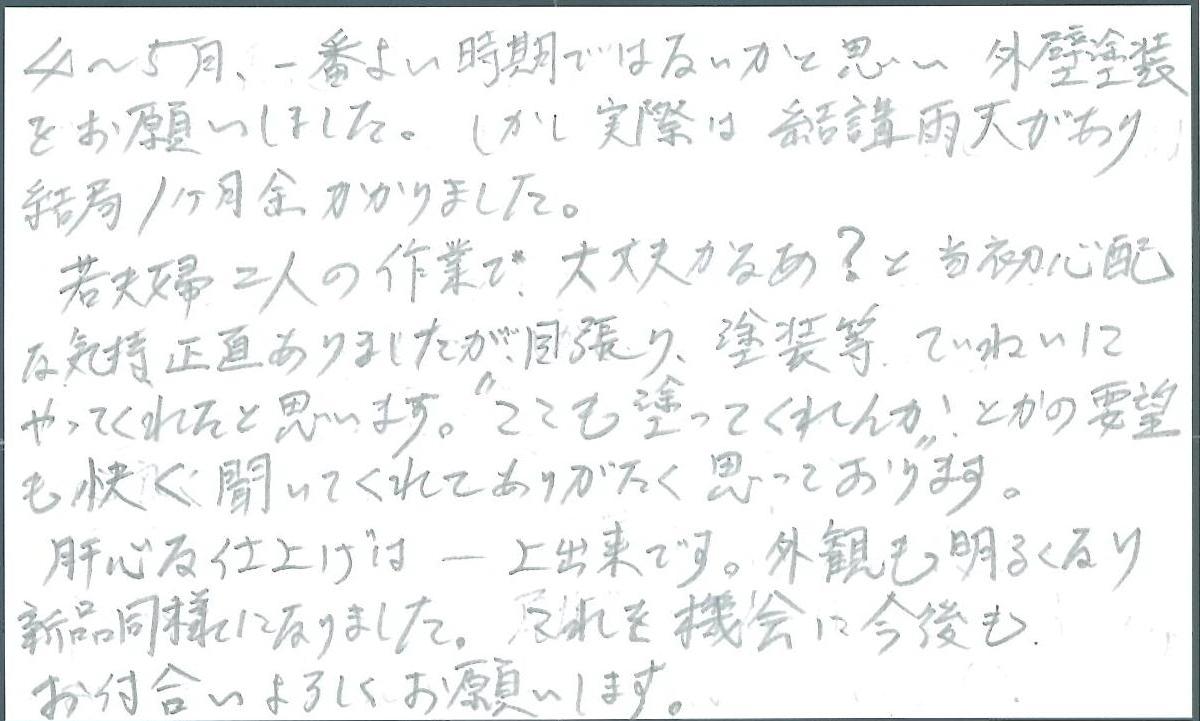 4~5月、一番よい時期ではないかと思い 外壁塗装
をお願いしました。しかし実際は 結講雨天があり
結局1ヶ月余かかりました。
若夫婦二人の作業で、大丈夫かなあ?と当初心配
な気持正直ありましたが、目張り、塗装等、ていねいに
やってくれたと思います。"ここも塗ってくれんか!"とかの要望
も快く聞いてくれてありがたく思っております。
肝心な仕上げは 一 上出来です。外観も明るくなり
新品同様になりました。これを機会に今後も
お付合いよろしくお願いします。